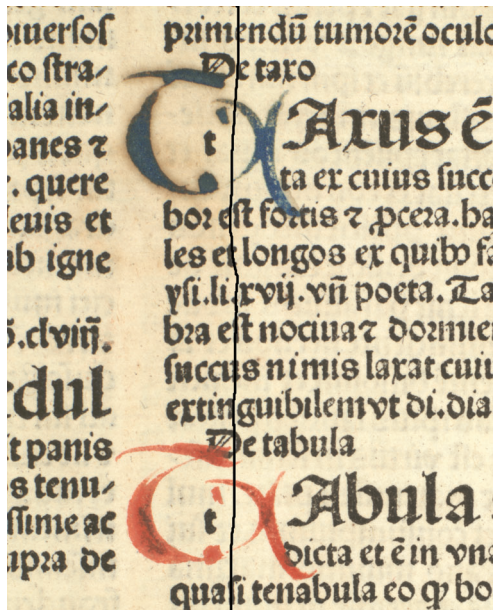 co ſtra⸗
alia in⸗
⁊
. quere
leuis et
ab igne
.clviij.
dul
it panis
s tenu⸗
ſſime ac
upra de
primendū tumorē oculo
De taxo
t AXus ē
ta ex cuius ſucc
bor eſt fortis ⁊ ꝓcera.ha
les et longos ex quibꝰ fa
yſi.li.xvij.vñ poeta.Ta
bra eſt nociua ⁊ dormie
ſuccus nimis laxat cuiu
extinguibilem vt di.dia
De tabula
t Abula
dicta et ē in vna
quaſi tenabula eo ꝙ bo